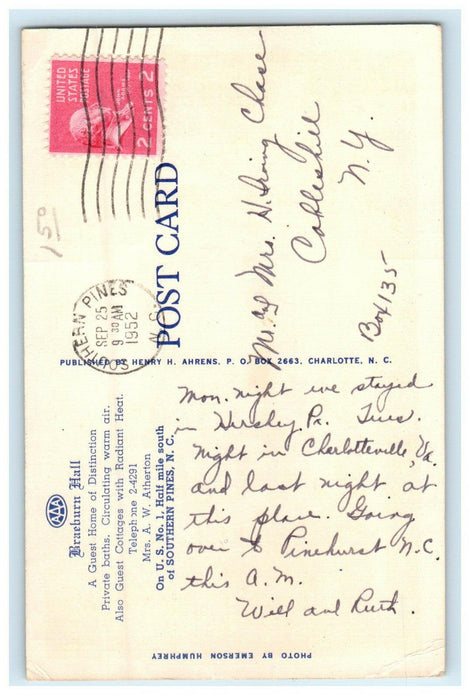 UNITED
STATES
POSTAGE
2 CENTS 2
1 50
SOUTHERN PINES
SEP 25
9 30 AM
1952
N.C.
POST CARD
Mr. and Mrs. H. Irving Chase
Cobleskill
N.Y.
Box 135
PUBLISHED BY HENRY H. AHRENS, P. O. BOX 2663, CHARLOTTE, N. C.
AAA
Braeburn Hall
A Guest Home of Distinction
Private baths. Circulating warm air.
Also Guest Cottages with Radiant Heat.
Telephone 2-4291
Mrs. A. W. Atherton
On U. S. No. 1, Half mile south
of SOUTHERN PINES, N. C.
Mon. night we stayed
in Hershey Pa. Tues.
night in Charlotteville, Va.
and last night at
this place. Going
over to Pinehurst N.C.
this A.M.
Will and Ruth.
PHOTO BY EMERSON HUMPHREY